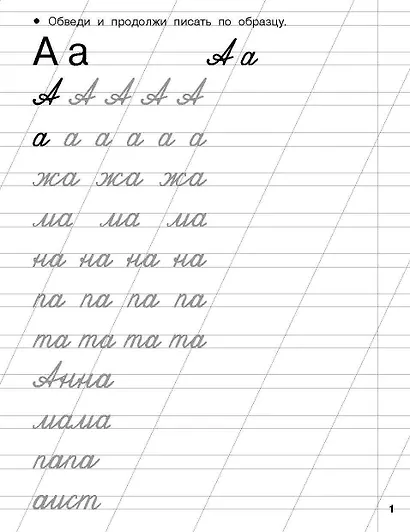 • Обведи и продолжи писать по образцу.
А а А а
А А А А А
а а а а а а
жа жа жа
ма ма ма
на на на на
па па па па
та та та та
Анна
мама
папа
аист
1